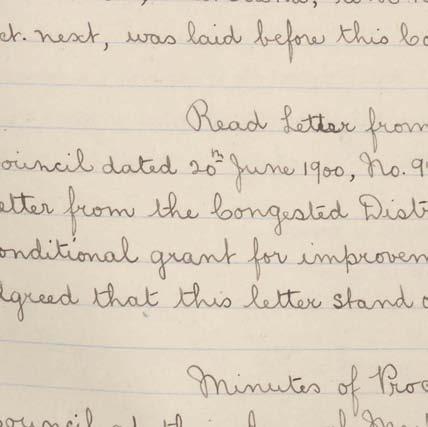 ct. next, was laid before this Co
Read Letter from
ouncil dated 20th June 1900, No. 9
etter from the Congested Distr
onditional grant for improvem
Agreed that this letter stand o
Minutes of Proc